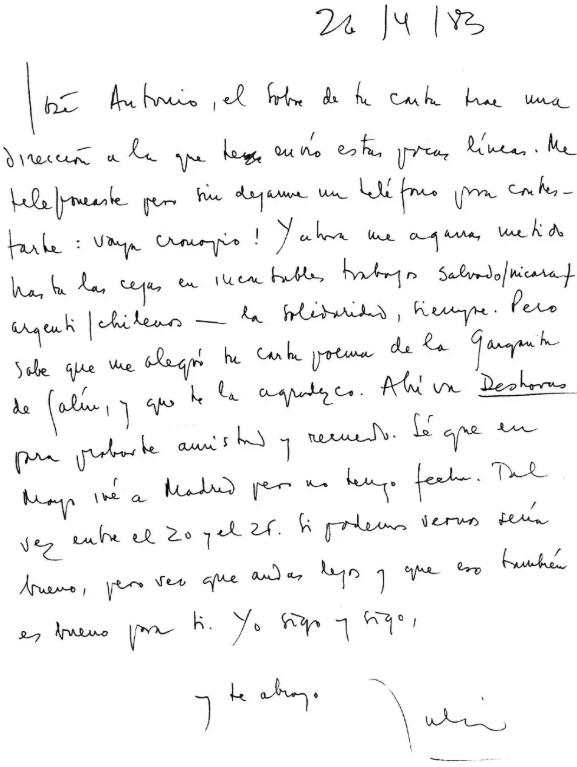 26/4/83
José Antonio, el sobre de tu carta trae una
dirección a la que te envío estas pocas líneas. Me
telefoneaste pero sin dejarme un teléfono para contes-
tarte: vaya cronopio! Y ahora me agarras metido
hasta las cejas en incontables trabajos salvado/nicara/
argenti/chilenos — la solidaridad, siempre. Pero
sabe que me alegró tu carta poema de la Garganta
de, y que te la agradezco. Ahí va Deshoras
para probarte amistad y recuerdo. Sé que en
Mayo iré a Madrid pero no tengo fecha. Tal
vez entre el 20 y el 25. Si podemos vernos sería
bueno, pero veo que andas lejos y que eso también
es bueno para ti. Yo sigo y sigo,
y te abrazo
Julio